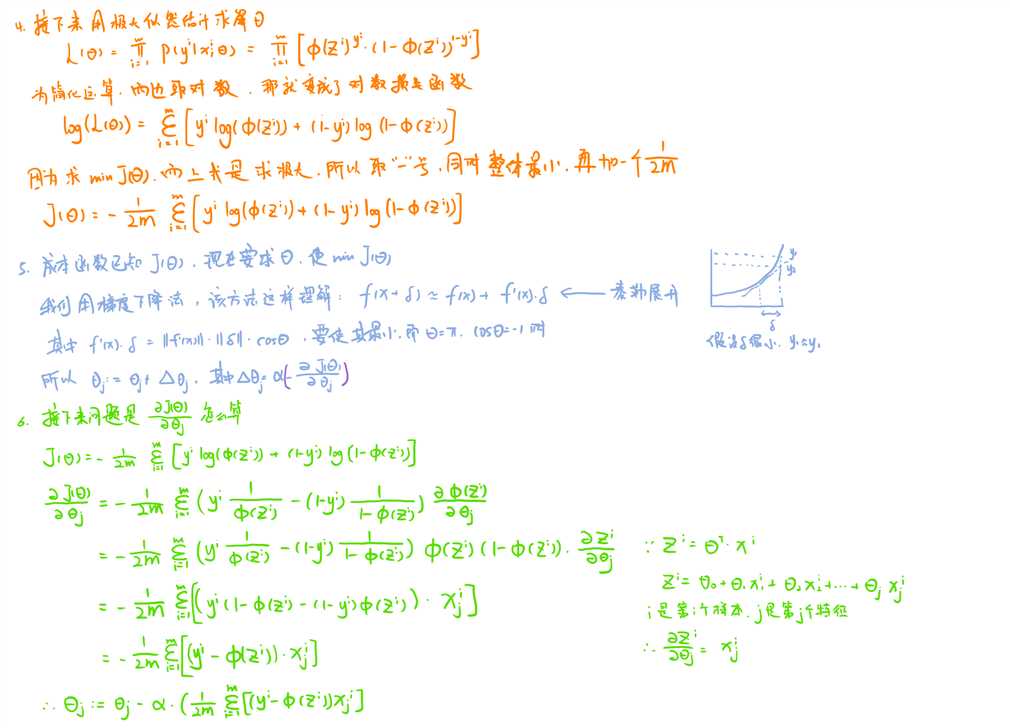 4. 接下来用极大似然估计求解θ
L(θ) = ∏_{i=1}^{m} P(y^i|x^i;θ) = ∏_{i=1}^{m} [φ(z^i)^{y^i} · (1-φ(z^i))^{1-y^i}]
为简化运算,两边取对数,那就变成了对数损失函数
log(L(θ)) = Σ_{i=1}^{m} [y^i log(φ(z^i)) + (1-y^i) log (1-φ(z^i))]
因为求 min J(θ),而上式是求极大,所以取"-"号,同时整体最小,再加一个 1/2m
J(θ) = - 1/2m Σ_{i=1}^{m} [y^i log(φ(z^i)) + (1-y^i) log (1-φ(z^i))]
5. 成本函数已知 J(θ),现在要求θ,使 min J(θ)
我们用梯度下降法,该方法这样理解: f(x+δ) ≈ f(x) + f'(x)·δ ← 泰勒展开
其中 f'(x)·δ = ||f'(x)||·||δ||·cosθ,要使其最小,即θ=π, cosθ=-1时
所以 θ_j := θ_j + Δθ_j,其中Δθ_j = α(-∂J(θ)/∂θ_j)
y₁
y₂
δ
假设δ很小, y₁≈y₂
6. 接下来问题是 ∂J(θ)/∂θ_j 怎么算
J(θ) = - 1/2m Σ_{i=1}^{m} [y^i log(φ(z^i)) + (1-y^i) log (1-φ(z^i))]
∂J(θ)/∂θ_j = - 1/2m Σ_{i=1}^{m} (y^i 1/φ(z^i) - (1-y^i) 1/(1-φ(z^i))) ∂φ(z^i)/∂θ_j
= - 1/2m Σ_{i=1}^{m} (y^i 1/φ(z^i) - (1-y^i) 1/(1-φ(z^i))) φ(z^i) (1-φ(z^i)) · ∂z^i/∂θ_j
∵ z^i = θ^T · x^i
z^i = θ₀ + θ₁x₁^i + θ₂x₂^i + … + θ_j x_j^i
= - 1/2m Σ_{i=1}^{m} [(y^i (1-φ(z^i) - (1-y^i) φ(z^i)) · x_j^i]
i是第i个样本, j是第j个特征
∴ ∂z^i/∂θ_j = x_j^i
= - 1/2m Σ_{i=1}^{m} [(y^i - φ(z^i)) · x_j^i]
∴ θ_j := θ_j - α · (1/2m Σ_{i=1}^{m} [(y^i - φ(z^i)) x_j^i]